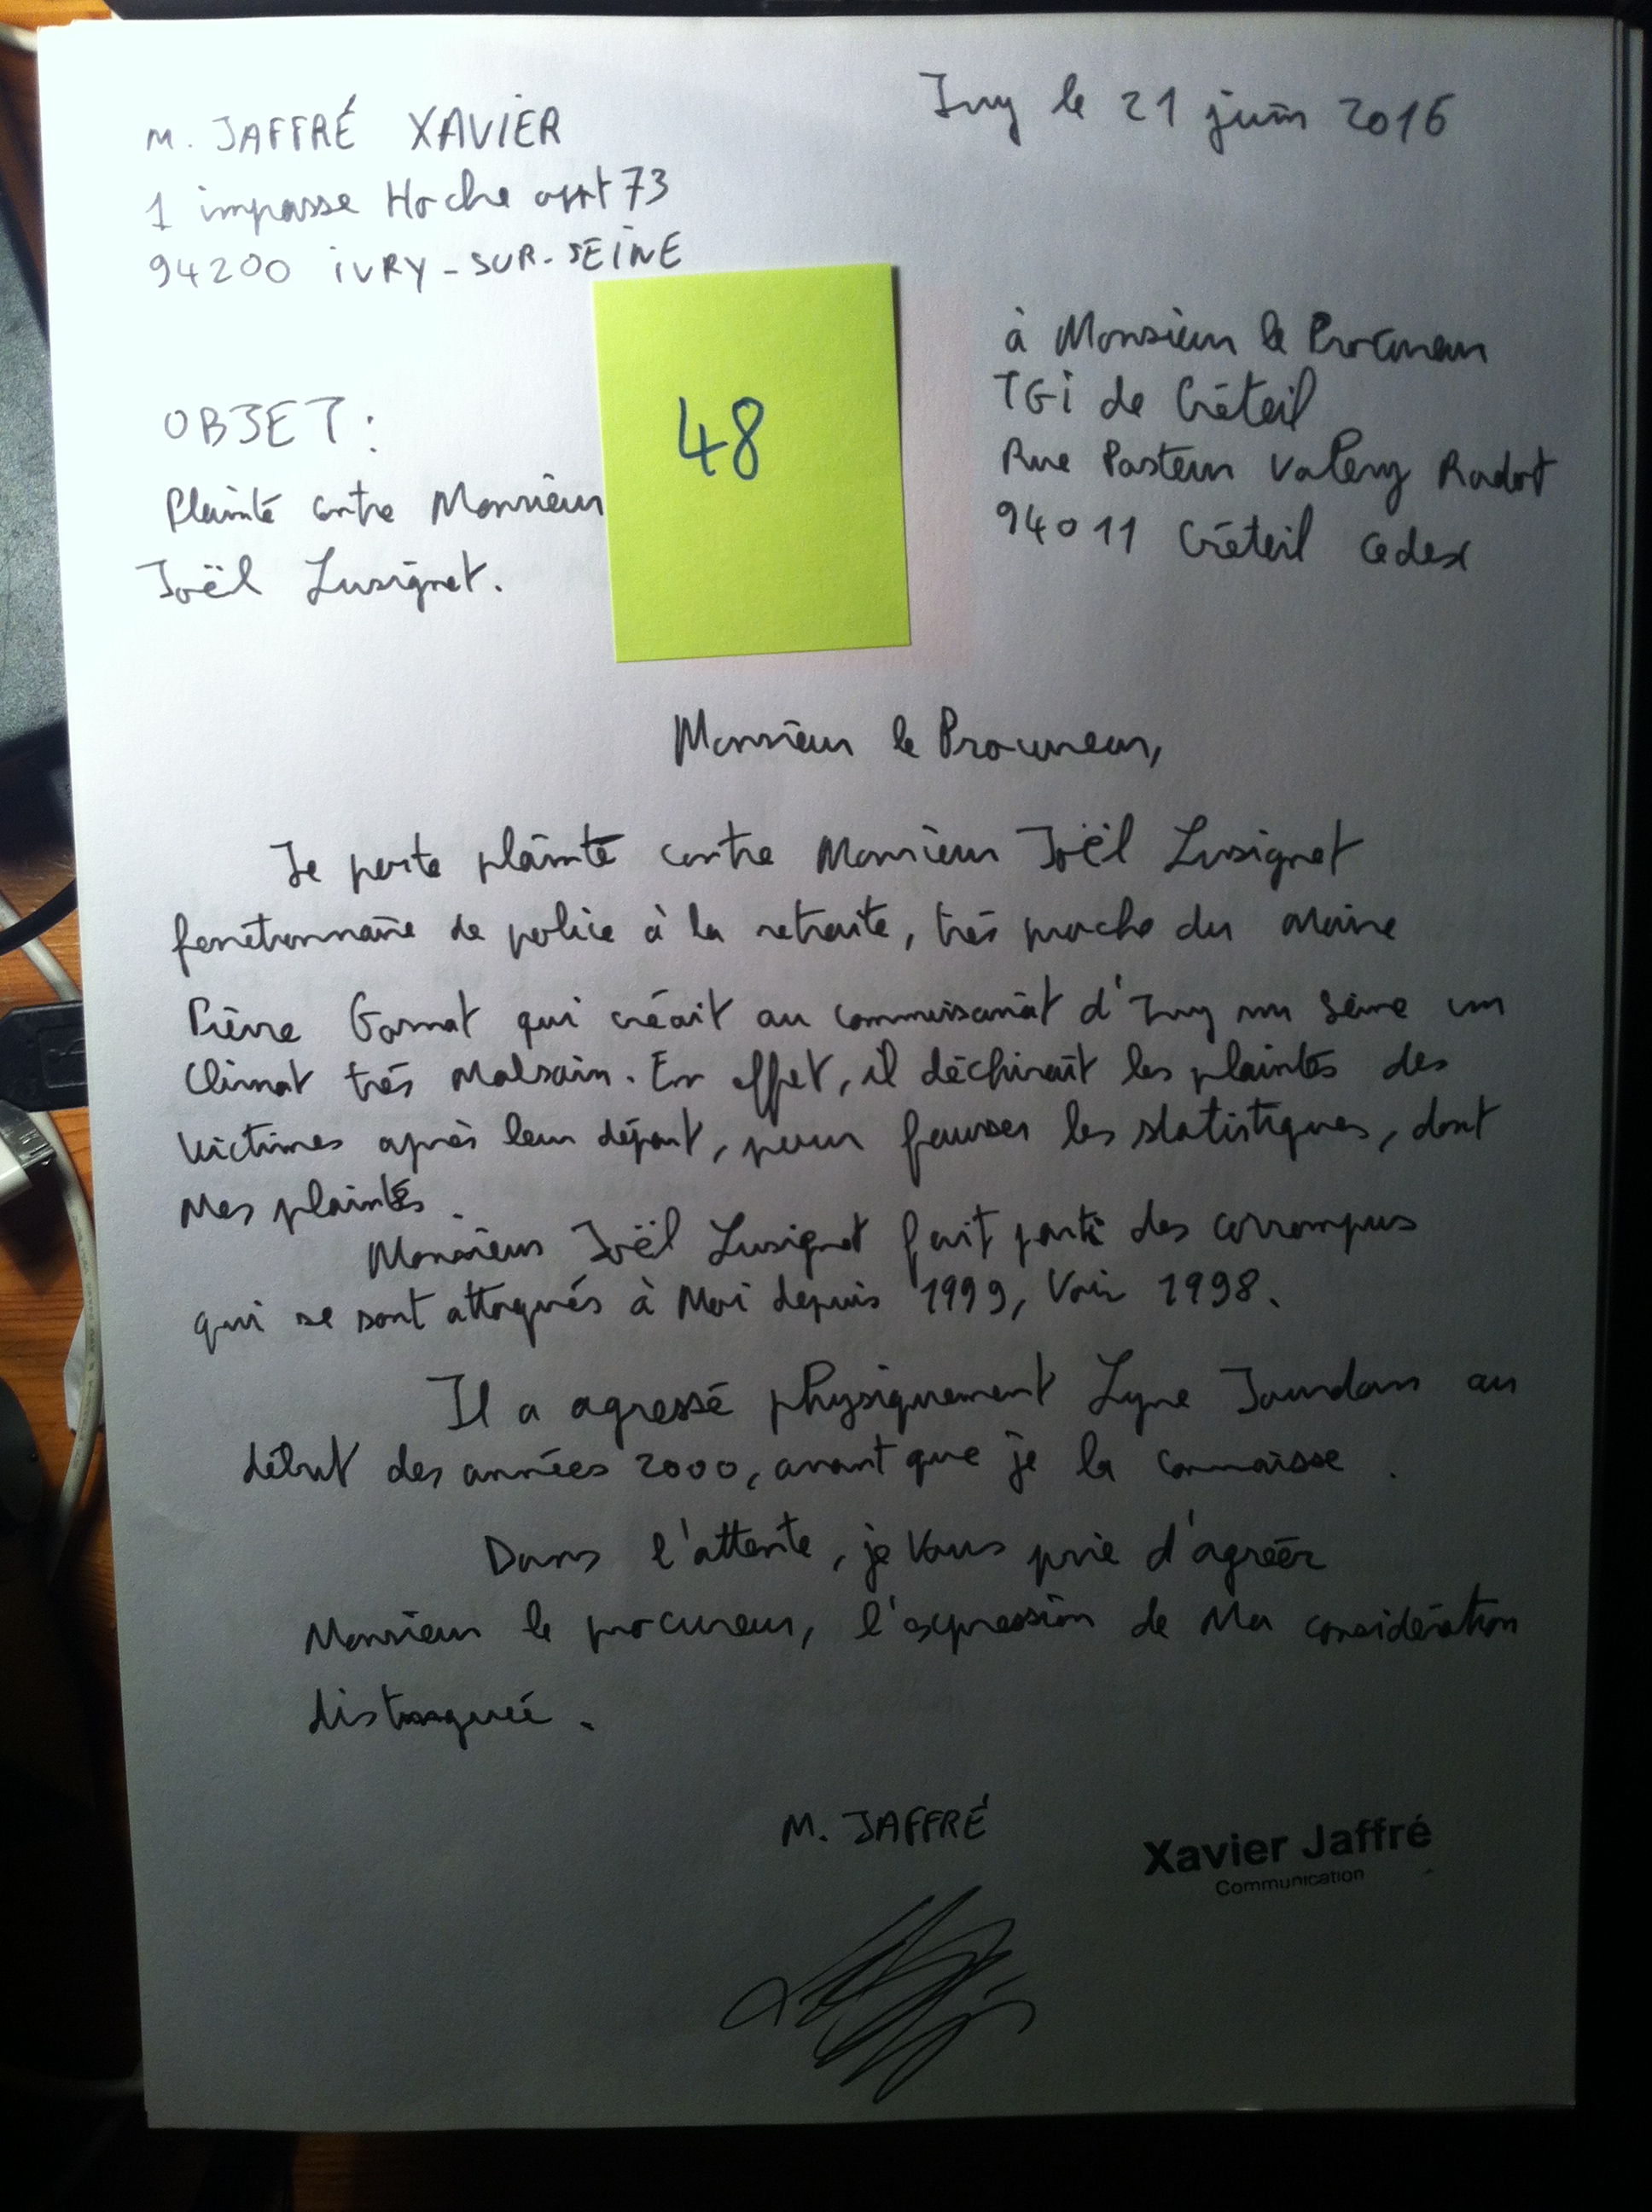 M. JAFFRÉ XAVIER
1 impasse Hoche appt 73
94200 IVRY-SUR-SEINE
Ivry le 21 juin 2016
à Monsieur le Procureur
TGI de Créteil
Rue Pasteur Valery Radot
94011 Créteil Cedex
48
OBJET :
Plainte contre Monsieur
Joël Lusignet.
Monsieur le Procureur,
Je porte plainte contre Monsieur Joël Lusignet
fonctionnaire de police à la retraite, très proche du Maire
Pierre Gosnat qui créait au commissariat d'Ivry sur Seine un
climat très malsain. En effet, il déchirait les plaintes des
victimes après leur départ, pour fausser les statistiques, dont
mes plaintes.
Monsieur Joël Lusignet fait parti des corrompus
qui se sont attaqués à moi depuis 1999, voir 1998.
Il a agressé physiquement Lyne Jourdan au
début des années 2000, avant que je la connaisse.
Dans l'attente, je vous prie d'agréer
Monsieur le procureur, l'expression de ma considération
distinguée.
M. JAFFRÉ
Xavier Jaffré
Communication